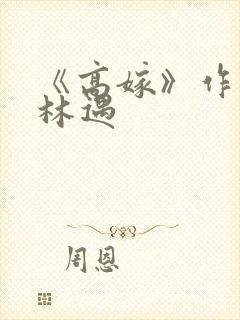 《高嫁》作
林遇
周恩